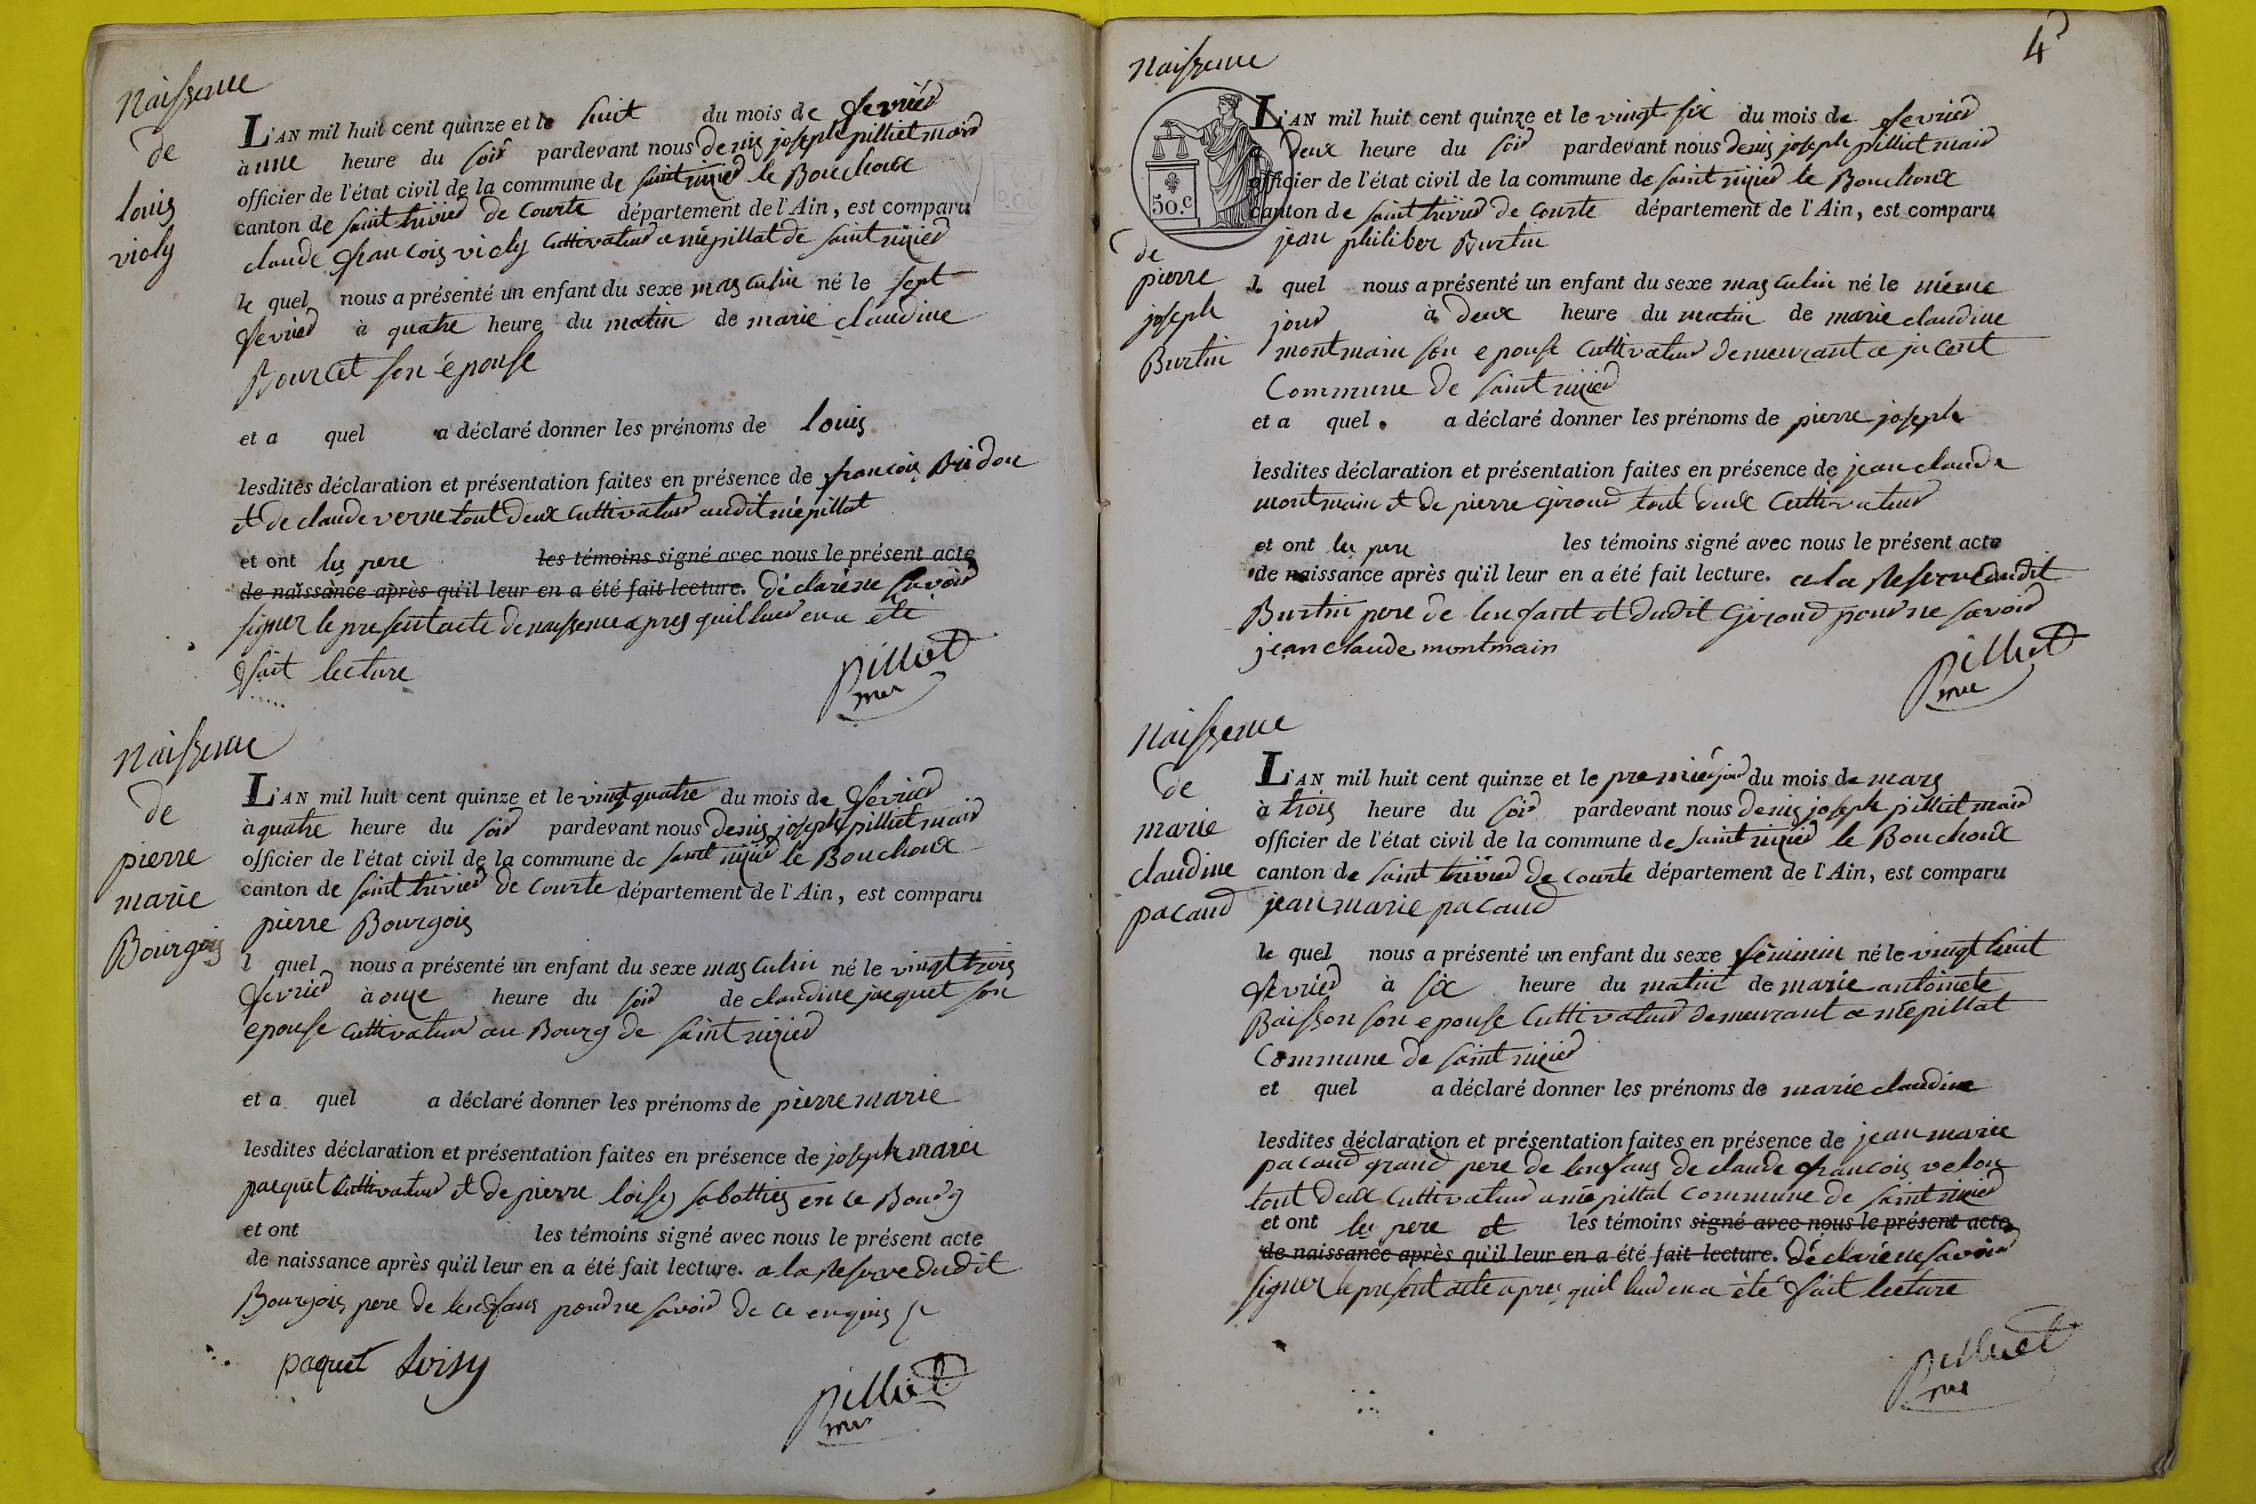 Naissence
de
louis
violy
L'AN mil huit cent quinze et le huit du mois de fevrier
à une heure du soir pardevant nous denis joseph pilliet maire
officier de l'état civil de la commune de saint nizier le Bouchoux
canton de saint trivier de Courte département de l'Ain, est comparu
claude francois violy Cultivateur a mépillat de saint nizier
le quel nous a présenté un enfant du sexe masculin né le sept
fevrier à quatre heure du matin de marie claudine
Bourcet son épouse
et a quel a déclaré donner les prénoms de louis
lesdites déclaration et présentation faites en présence de francois Bridon
et de claude verne tout deux Cultivateur audit mépillat
et ont les pere les témoins signé avec nous le présent acte
de naissance après qu'il leur en a été fait lecture. déclaré ne savoir
signer le present acte de naissence apres quil leur en a été
fait lecture
pilliet
mre
Naissence
de
pierre
marie
Bourgois
L'AN mil huit cent quinze et le vingt quatre du mois de fevrier
à quatre heure du soir pardevant nous denis joseph pilliet maire
officier de l'état civil de la commune de saint nizier le Bouchoux
canton de saint trivier de Courte département de l'Ain, est comparu
pierre Bourgois
l quel nous a présenté un enfant du sexe masculin né le vingt trois
fevrier à onze heure du soir de claudine jacquet son
epouse Cultivateur au Bourg de saint nizier
et a quel a déclaré donner les prénoms de pierre marie
lesdites déclaration et présentation faites en présence de joseph marie
pacquet Cultivateur et de pierre loisy sabottier en ce Bourg
et ont les témoins signé avec nous le présent acte
de naissance après qu'il leur en a été fait lecture. a la Reserve dudit
Bourgois pere de lenfans pour ne savoir de ce enquis
paquet Loisy
pilliet
mre
4
Naissence
50.c
de
pierre
joseph
Burtin
L'AN mil huit cent quinze et le vingt six du mois de fevrier
deux heure du soir pardevant nous denis joseph pilliet maire
officier de l'état civil de la commune de saint nizier le Bouchoux
canton de saint trivier de Courte département de l'Ain, est comparu
jean philiber Burtin
l quel nous a présenté un enfant du sexe masculin né le même
jour à deux heure du matin de marie claudine
montmain son epouse Cultivateur demeurant a jacent
Commune de saint nizier
et a quel a déclaré donner les prénoms de pierre joseph
lesdites déclaration et présentation faites en présence de jean claude
montmain et de pierre giroud tout deux Cultivateur
et ont les pere les témoins signé avec nous le présent acte
de naissance après qu'il leur en a été fait lecture. a la Reserve dudit
Burtin pere de lenfant et dudit Giroud pour ne savoir
jean claude montmain
pilliet
mre
Naissence
de
marie
claudine
pacaud
L'AN mil huit cent quinze et le premier jour du mois de mars
à trois heure du soir pardevant nous denis joseph pilliet maire
officier de l'état civil de la commune de saint nizier le Bouchoux
canton de saint trivier de courte département de l'Ain, est comparu
jean marie pacaud
le quel nous a présenté un enfant du sexe féminin né le vingt huit
fevrier à six heure du matin de marie antoinete
Baisson son epouse Cultivateur demeurant a mépillat
Commune de saint nizier
et quel a déclaré donner les prénoms de marie claudine
lesdites déclaration et présentation faites en présence de jean marie
pacaud grand pere de lenfans de claude francois velon
tout deux Cultivateur a mépillat commune de saint nizier
et ont les pere et les témoins signé avec nous le présent acte
de naissance après qu'il leur en a été fait lecture. déclaré ne savoir
signer le present acte apres quil leur en a été fait lecture
pilliet
mre